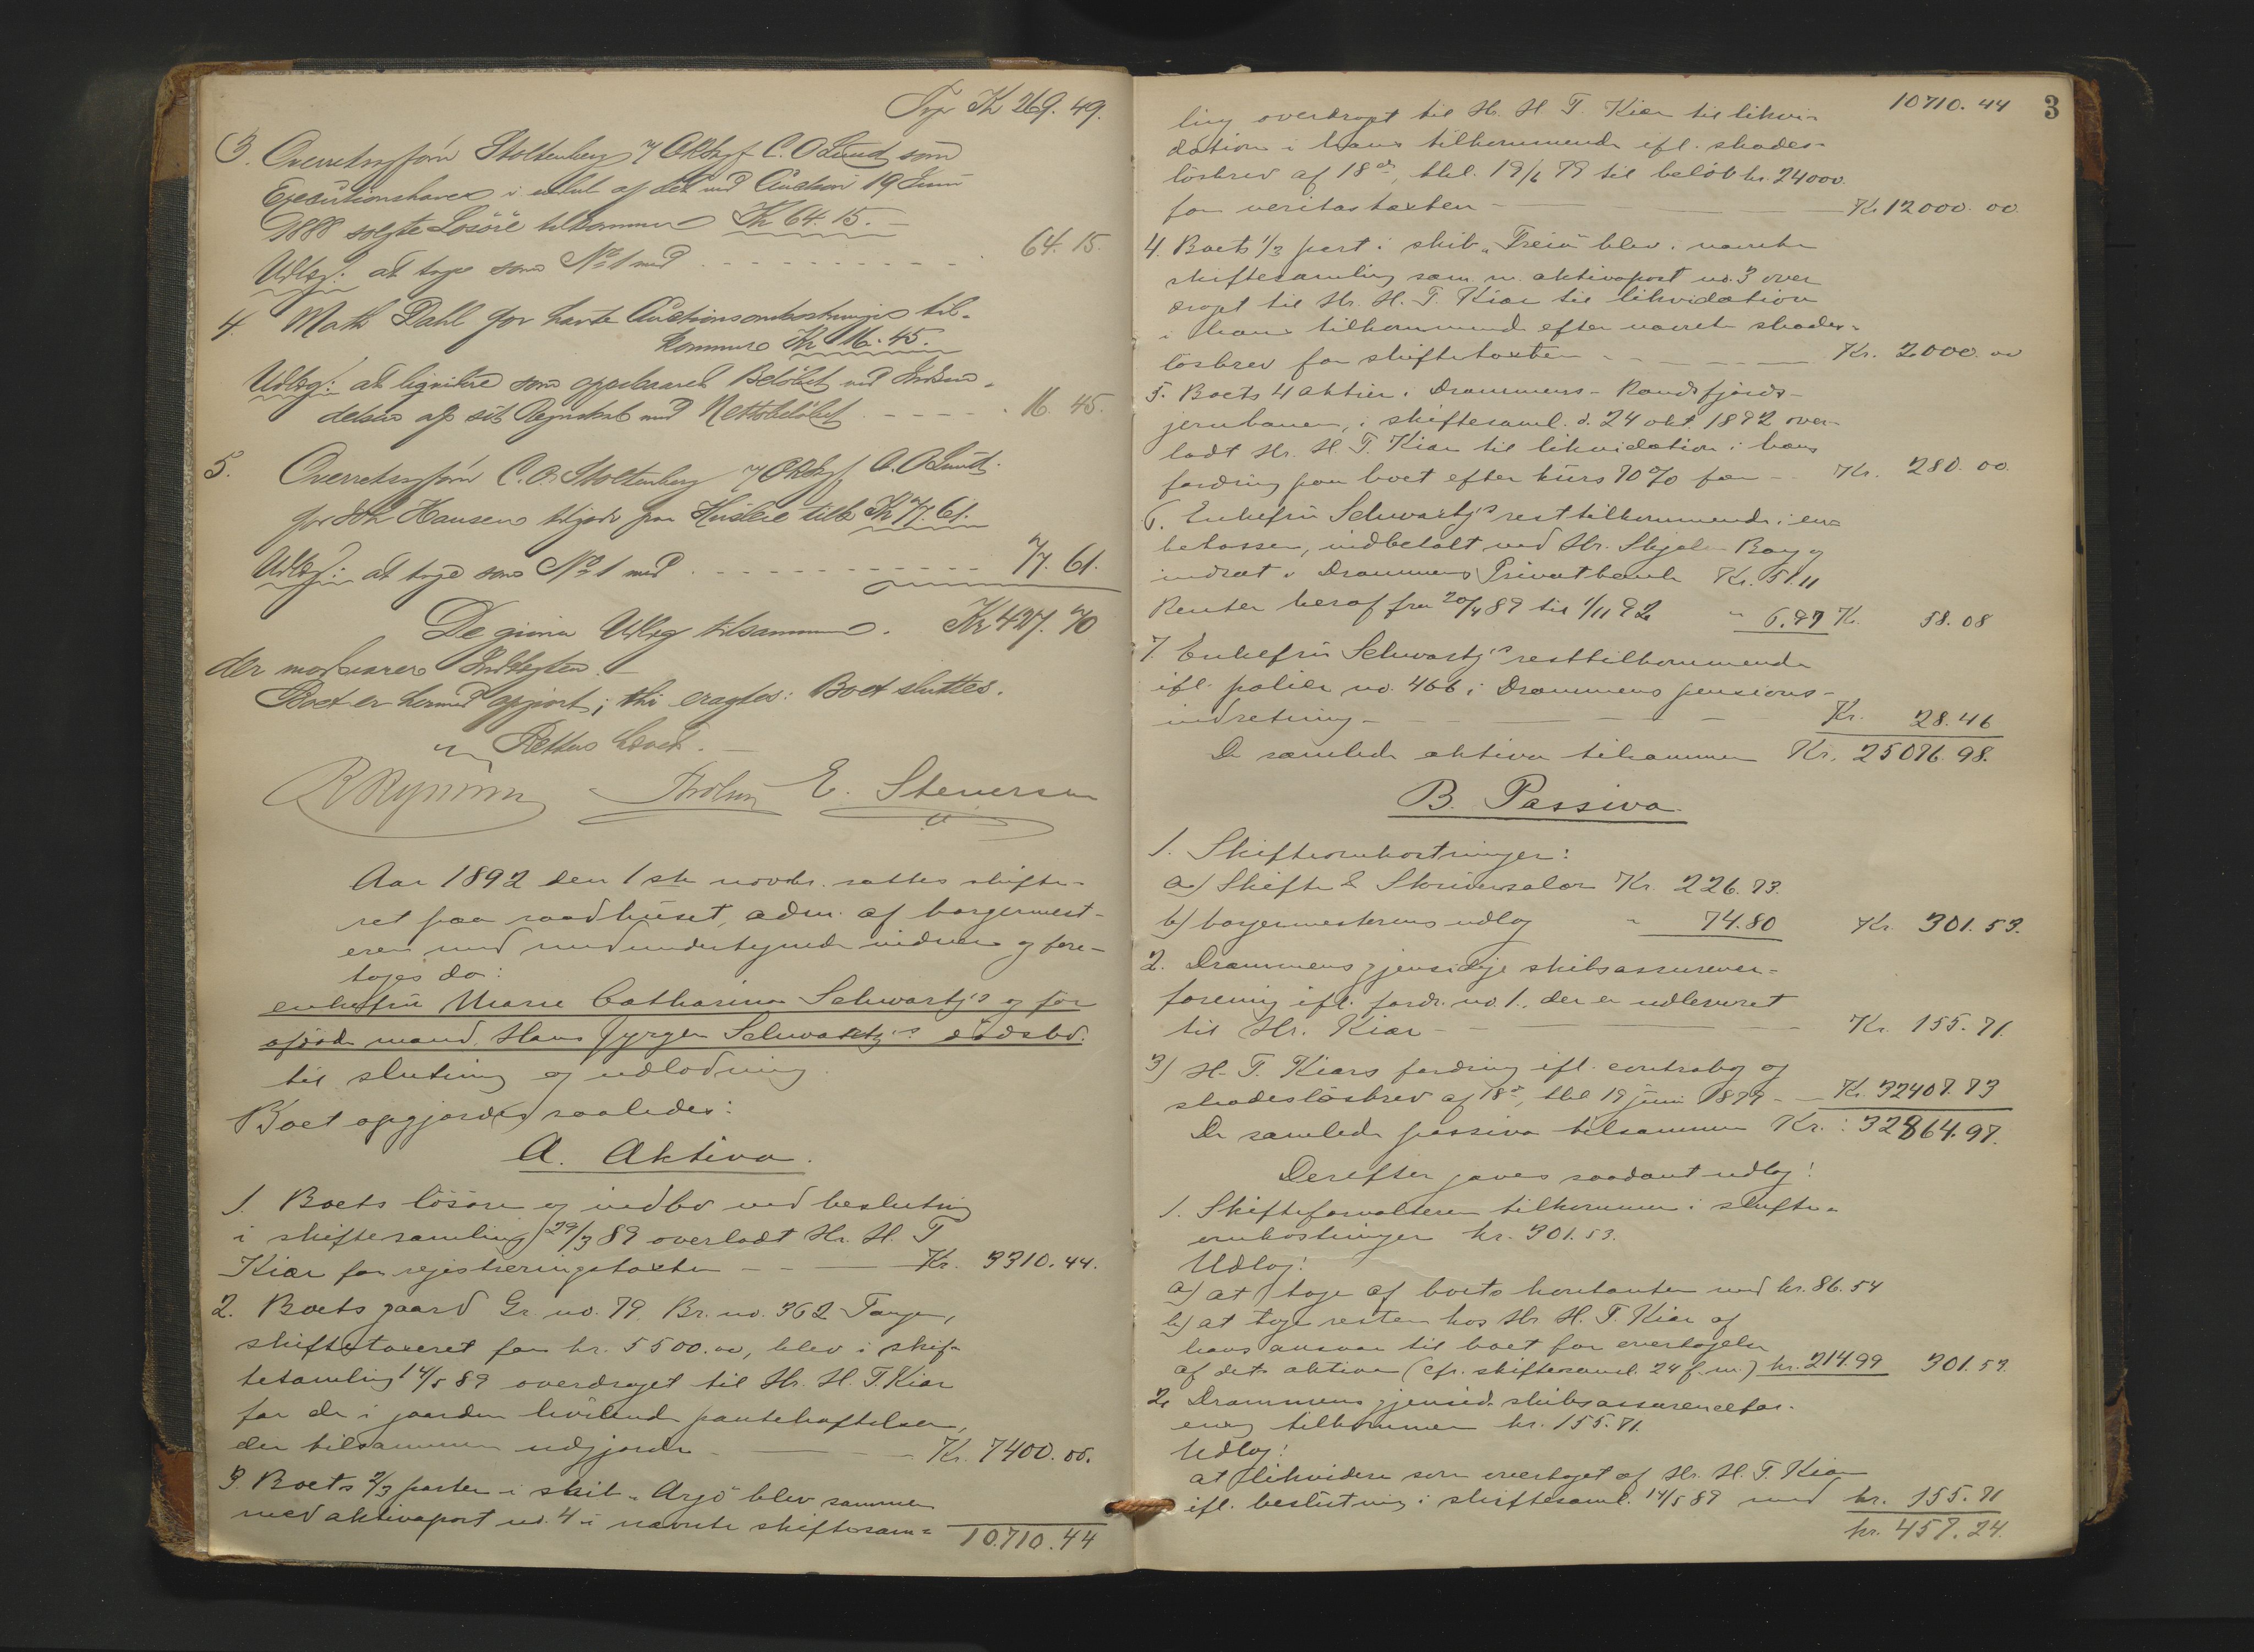 Trp Kr 269.49.
3. Overretssagfører Stoltenberg / Orsagf. C. O. Lund som
Executionshaver i endel af det ved Auction 19 Juni
1888 solgte Løsøre tilkommer Kr 64.15.
Udlæg: at tage som No 1 med - - - - - 64.15.
4. Math Dahl for havte Auctionsomkostninger til-
kommer Kr 16.45.
Udlæg: at ligvidere som oppebaaret Beløbet ved Indsen-
delsen af sit Regnskab med Nettobeløbet - - - - 16.45.
5. Overretssagfører C. O. Stoltenberg / Orsagf C. O Lund
for Hansen tilgode for Huusleie tilk Kr 77.61.
Udlæg: at tage som No 1 med - - - - - 77.61.
De givne Udlæg tilsammen. Kr 427.70
der modsvarer Indtægten. -
Boet er hermed opgjort; thi eragtes: Boet sluttes.
Retten hævet. -
E. Stenersen
Aar 1892 den 1ste novbr. sattes skifte-
ret paa raadhuset, adm. af borgermest-
eren med medundertegnede vidner og fore-
toges da:
enkefru Marie Catharina Schwartz's og før
afdøde mand, Hans Jyrgen Schwartz's dødsbo.
til slutning og udlodning.
Boet opgjordes saaledes:
A. Aktiva.
1. Boets løsøre og indbo ved beslutning
i skiftesamling 29/3 89 overladt Hr. H. T
Kiær for registreringstaxten - - - Kr. 3310.44.
2. Boets gaard Gr. no. 79. Br. no. 362 Tangen,
skiftetaxeret for kr. 5500.00, blev i skif-
tesamling 14/5 89 overdraget til Hr. H. T. Kiær
for de i gaarden hvilende pantehæftelser,
der tilsammen udgjorde - - - Kr. 7400.00.
3. Boets 2/3 parter i skib "Argo" blev sammen
med aktivapost no. 4 i nævnte skiftesam=
10.710.44
10710.44 3
ling overdraget til Hr. H. T. Kiær til likvi-
dation i hans tilkommende ifl. skades-
løsbrev af 18de, thl. 19/6 79 til beløb kr. 24000.
for veritastaxten - - - Kr. 12000.00.
4. Boets 1/3 part i skib "Freia" blev i nævnte
skiftesamling sam. m. aktivapost no. 3 over
draget til Hr. H. T. Kiær til likvidation
i hans tilkommende efter nævnte skades-
løsbrev for skiftetaxten - - - Kr. 2000.00
5. Boets 4 aktier i Drammens-Randsfjords-
jernbanen, i skiftesaml. d. 24 okt. 1892 over-
ladt Hr. H. T. Kiær til likvidation i hans
fordring paa boet efter kurs 70 % for - - Kr. 280.00.
6. Enkefru Schwartz's resttilkommende i en=
kekassen, indbetalt ved Hr. Bang og
indsat i Drammens Privatbank Kr. 51.11
Renter heraf fra 20/4 89 til 1/11 92 " 6.97 Kr. 58.08
7. Enkefru Schwartz's resttilkommende
ifl. police no. 466 i Drammens pensions-
indretning - - - Kr. 28.46
De samlede aktiva tilsammen Kr. 25076.98.
B. Passiva.
1. Skifteomkostninger:
a) Skifte & Skriversalær Kr. 226.73.
b) borgermesterens udlæg " 74.80 Kr. 301.53.
2. Drammens gjensidige skibsassurance-
forening ifl. fordr. no. 1., der er udleveret
til Hr. Kiær - - - Kr. 155.71.
3) H. T. Kiærs fordring ifl. contrabog og
skadesløsbrev af 18de, thl 19 juni 1879 - - Kr. 32407.73
De samlede passiva tilsammen Kr.: 32864.97.
Derefter gaves saadant udlæg:
1. Skifteforvalteren tilkommer i skifte=
omkostninger kr. 301.53.
Udlæg:
a) at tage af boets kontanter med kr. 86.54
b) at tage resten hos Hr. H. T. Kiær af
hans ansvar til boet for overtagelse
af dets aktiva (cfr. skiftesaml. 24 f. m.) kr. 214.99 301.53.
2. Drammens gjensid. skibsassurancefor-
ening tilkommer kr. 155.71.
Udlæg:
at likvidere som overtaget af Hr. H. T. Kiær
ifl. beslutning i skiftesaml. 14/5 89 med kr. 155.71
kr. 457.24.